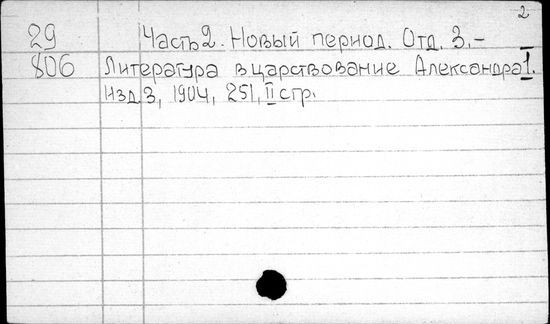 2
29 Часть 2. Новый период. Отд. 3.-
806 Литература в царствование Александра 1.
Изд 3, 1904, 251, II стр.